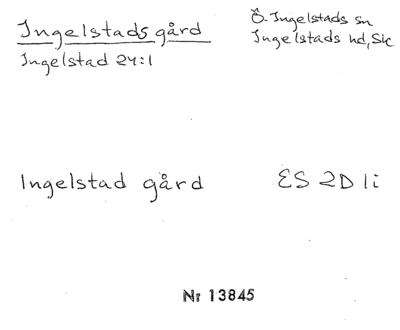 Ingelstads gård
Ö. Ingelstads sn
Ingelstads hd, Sk
Ingelstad 24:1
Ingelstad gård
ES 2D 1i
Nr 13845